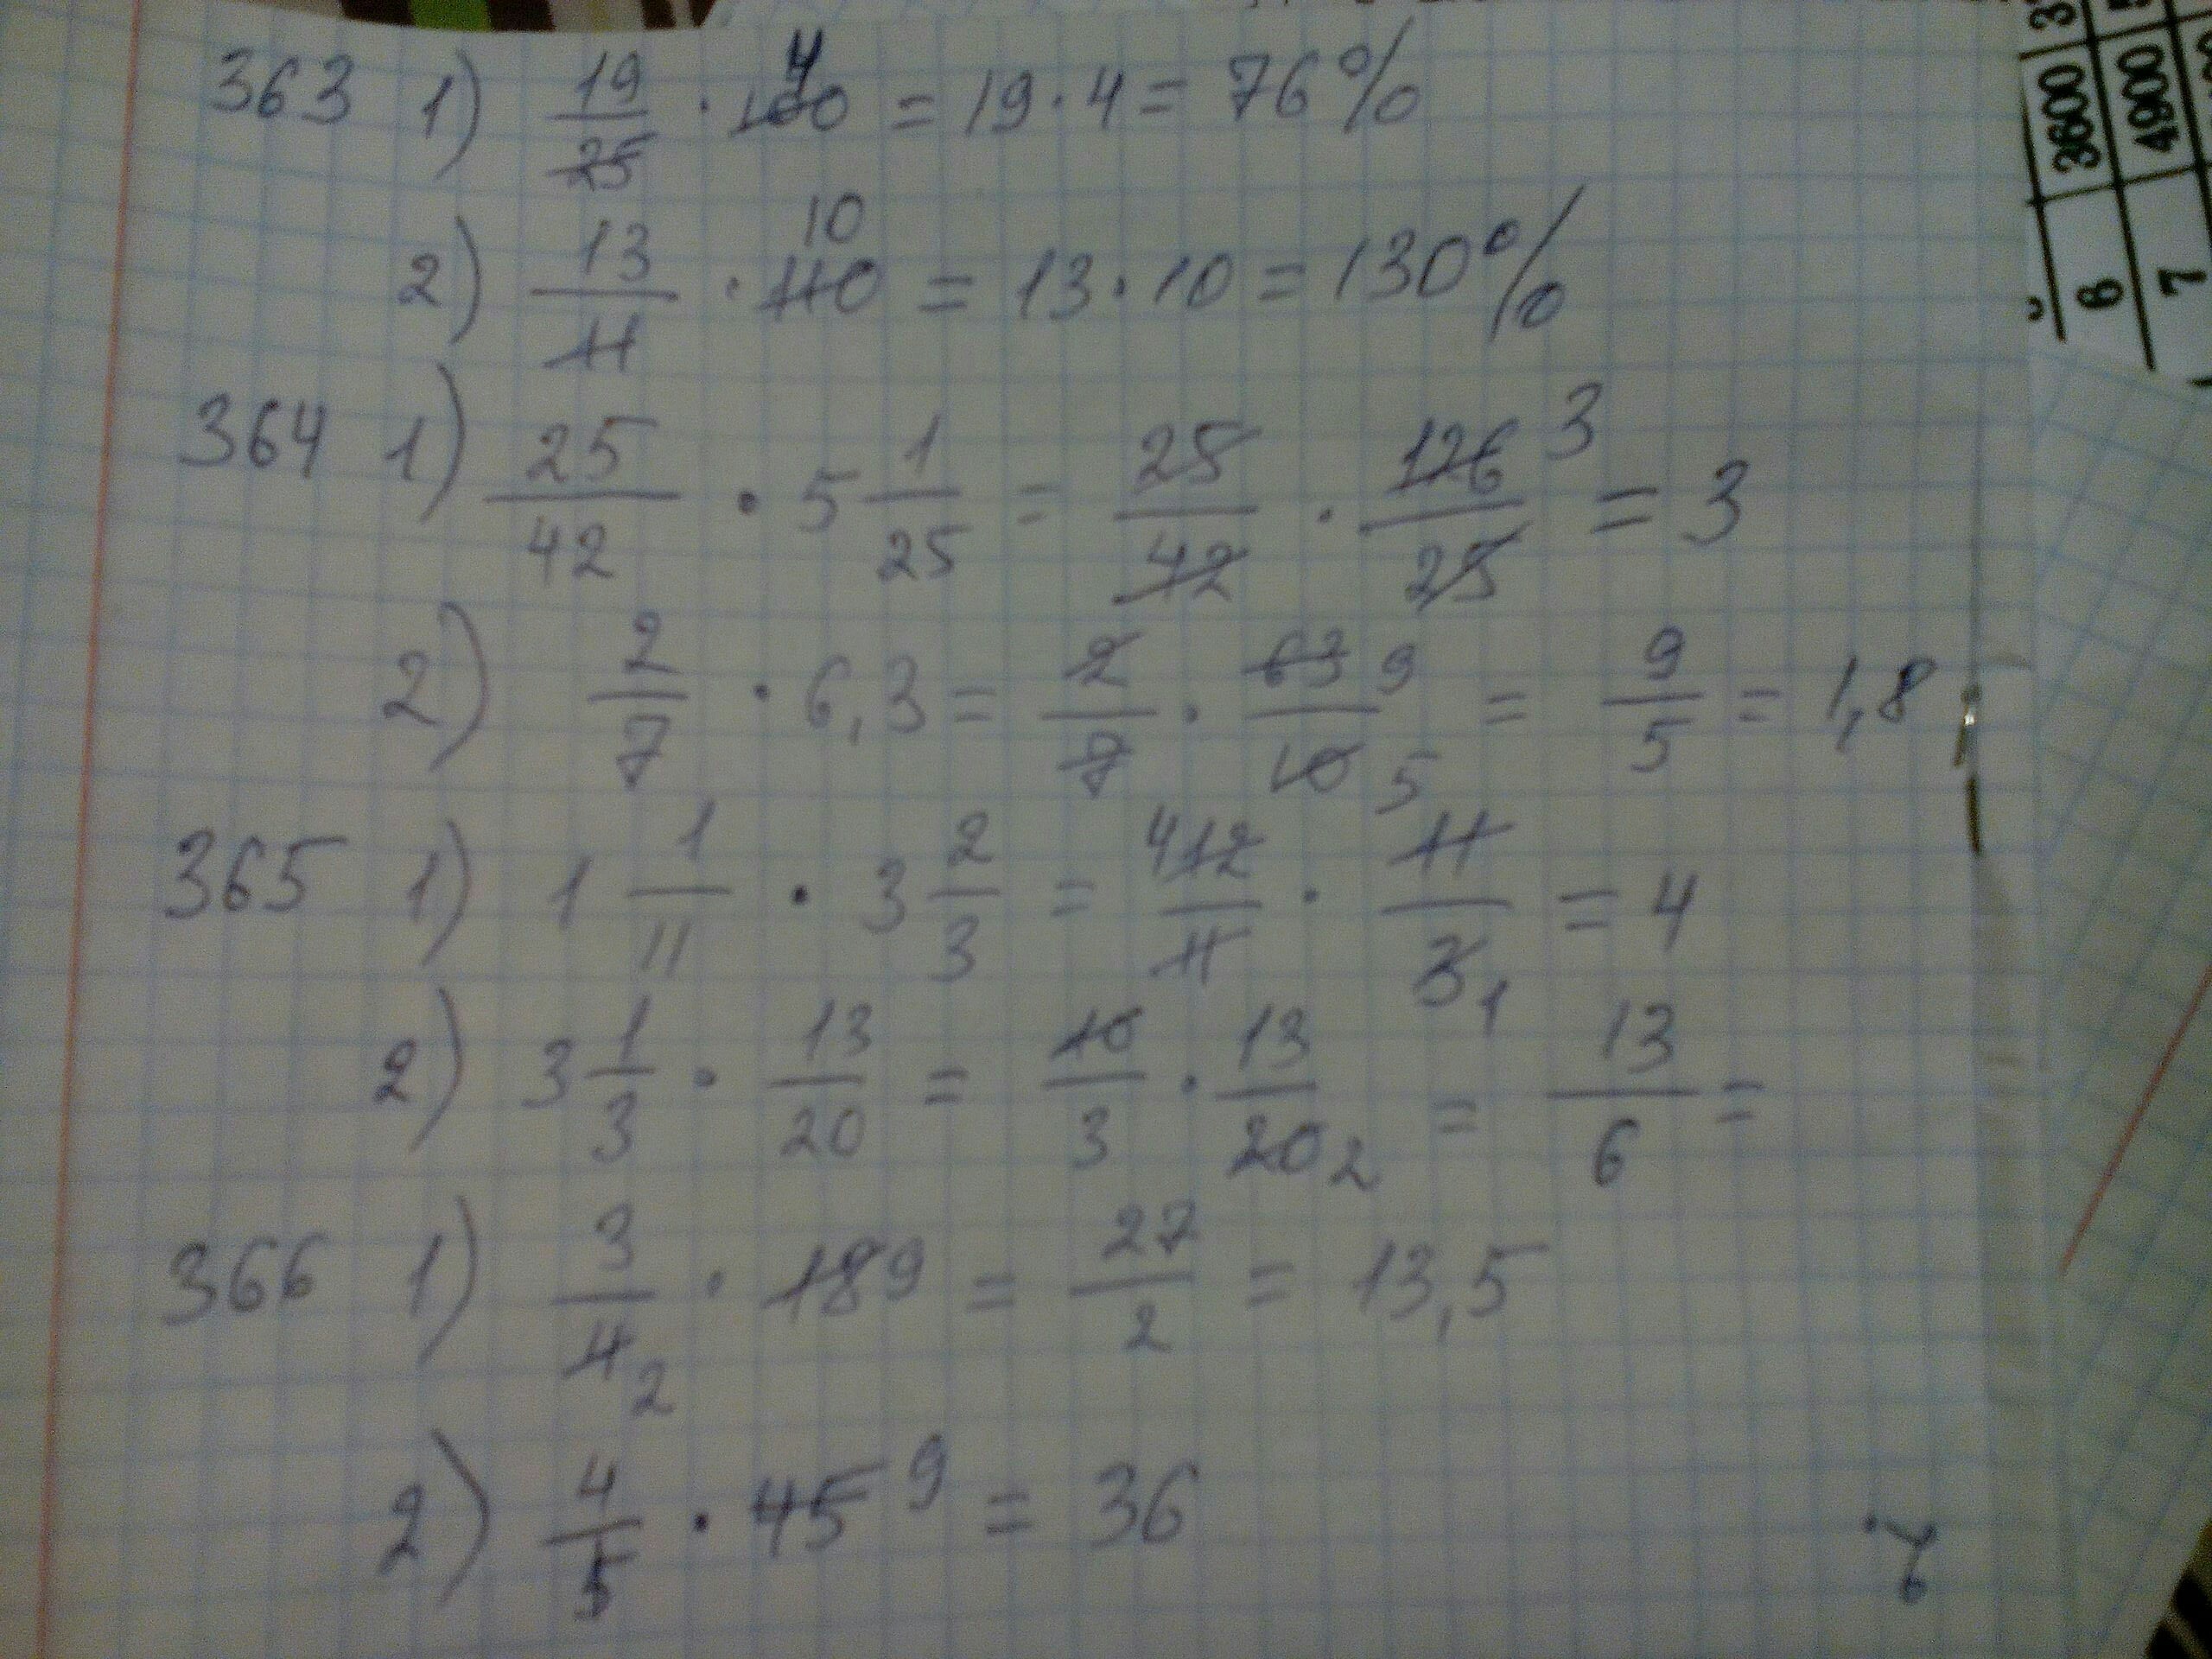 363 1) 19/25 · 100 4 = 19 · 4 = 76%
2) 13/11 · 110 10 = 13 · 10 = 130%
364 1) 25/42 · 5 1/25 = 25/42 · 126/25 3 = 3
2) 2/7 · 6,3 = 2/7 · 63/10 9 5 = 9/5 = 1,8
365 1) 1 1/11 · 3 2/3 = 4 12/11 · 11/3 1 = 4
2) 3 1/3 · 13/20 = 10/3 · 13/20 2 = 13/6 =
366 1) 3/4 2 · 18 9 = 27/2 = 13,5
2) 4/5 · 45 9 = 36
6 3600
7 4900